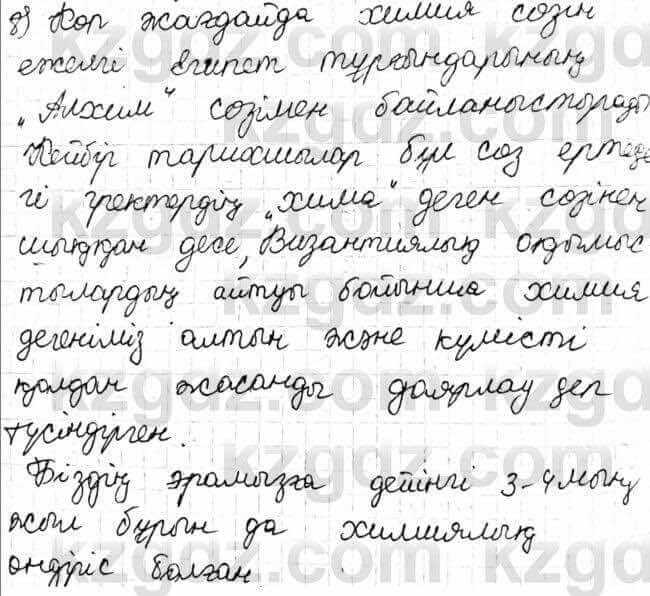 8) Көп жағдайда химия сөзін
ежелгі Египет тұрғындарының
„Алхим" сөзімен байланыстырады
Кейбір тарихшылар бұл сөз ертеде
гі гректердің „хима" деген сөзінен
шыққан десе, Византиялық оқымыс
тылардың айтуы бойынша химия
дегеніміз алтын және күмісті
қолдан жасанды даярлау деп
түсіндірген.
Біздің эрамызға дейінгі 3-4 мың
жыл бұрын да химиялық
өндіріс болған